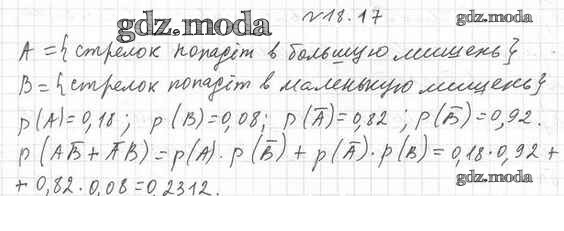 gdz.moda
№18.17
gdz.moda
A = {стрелок попадёт в большую мишень}
B = {стрелок попадёт в маленькую мишень}
p(A)=0,18; p(B)=0,08; p(A̅)=0,82; p(B̅)=0,92.
p(AB̅ + A̅B) = p(A)·p(B̅) + p(A̅)·p(B) = 0,18·0,92 +
+ 0,82·0,08 = 0,2312.
gdz.moda